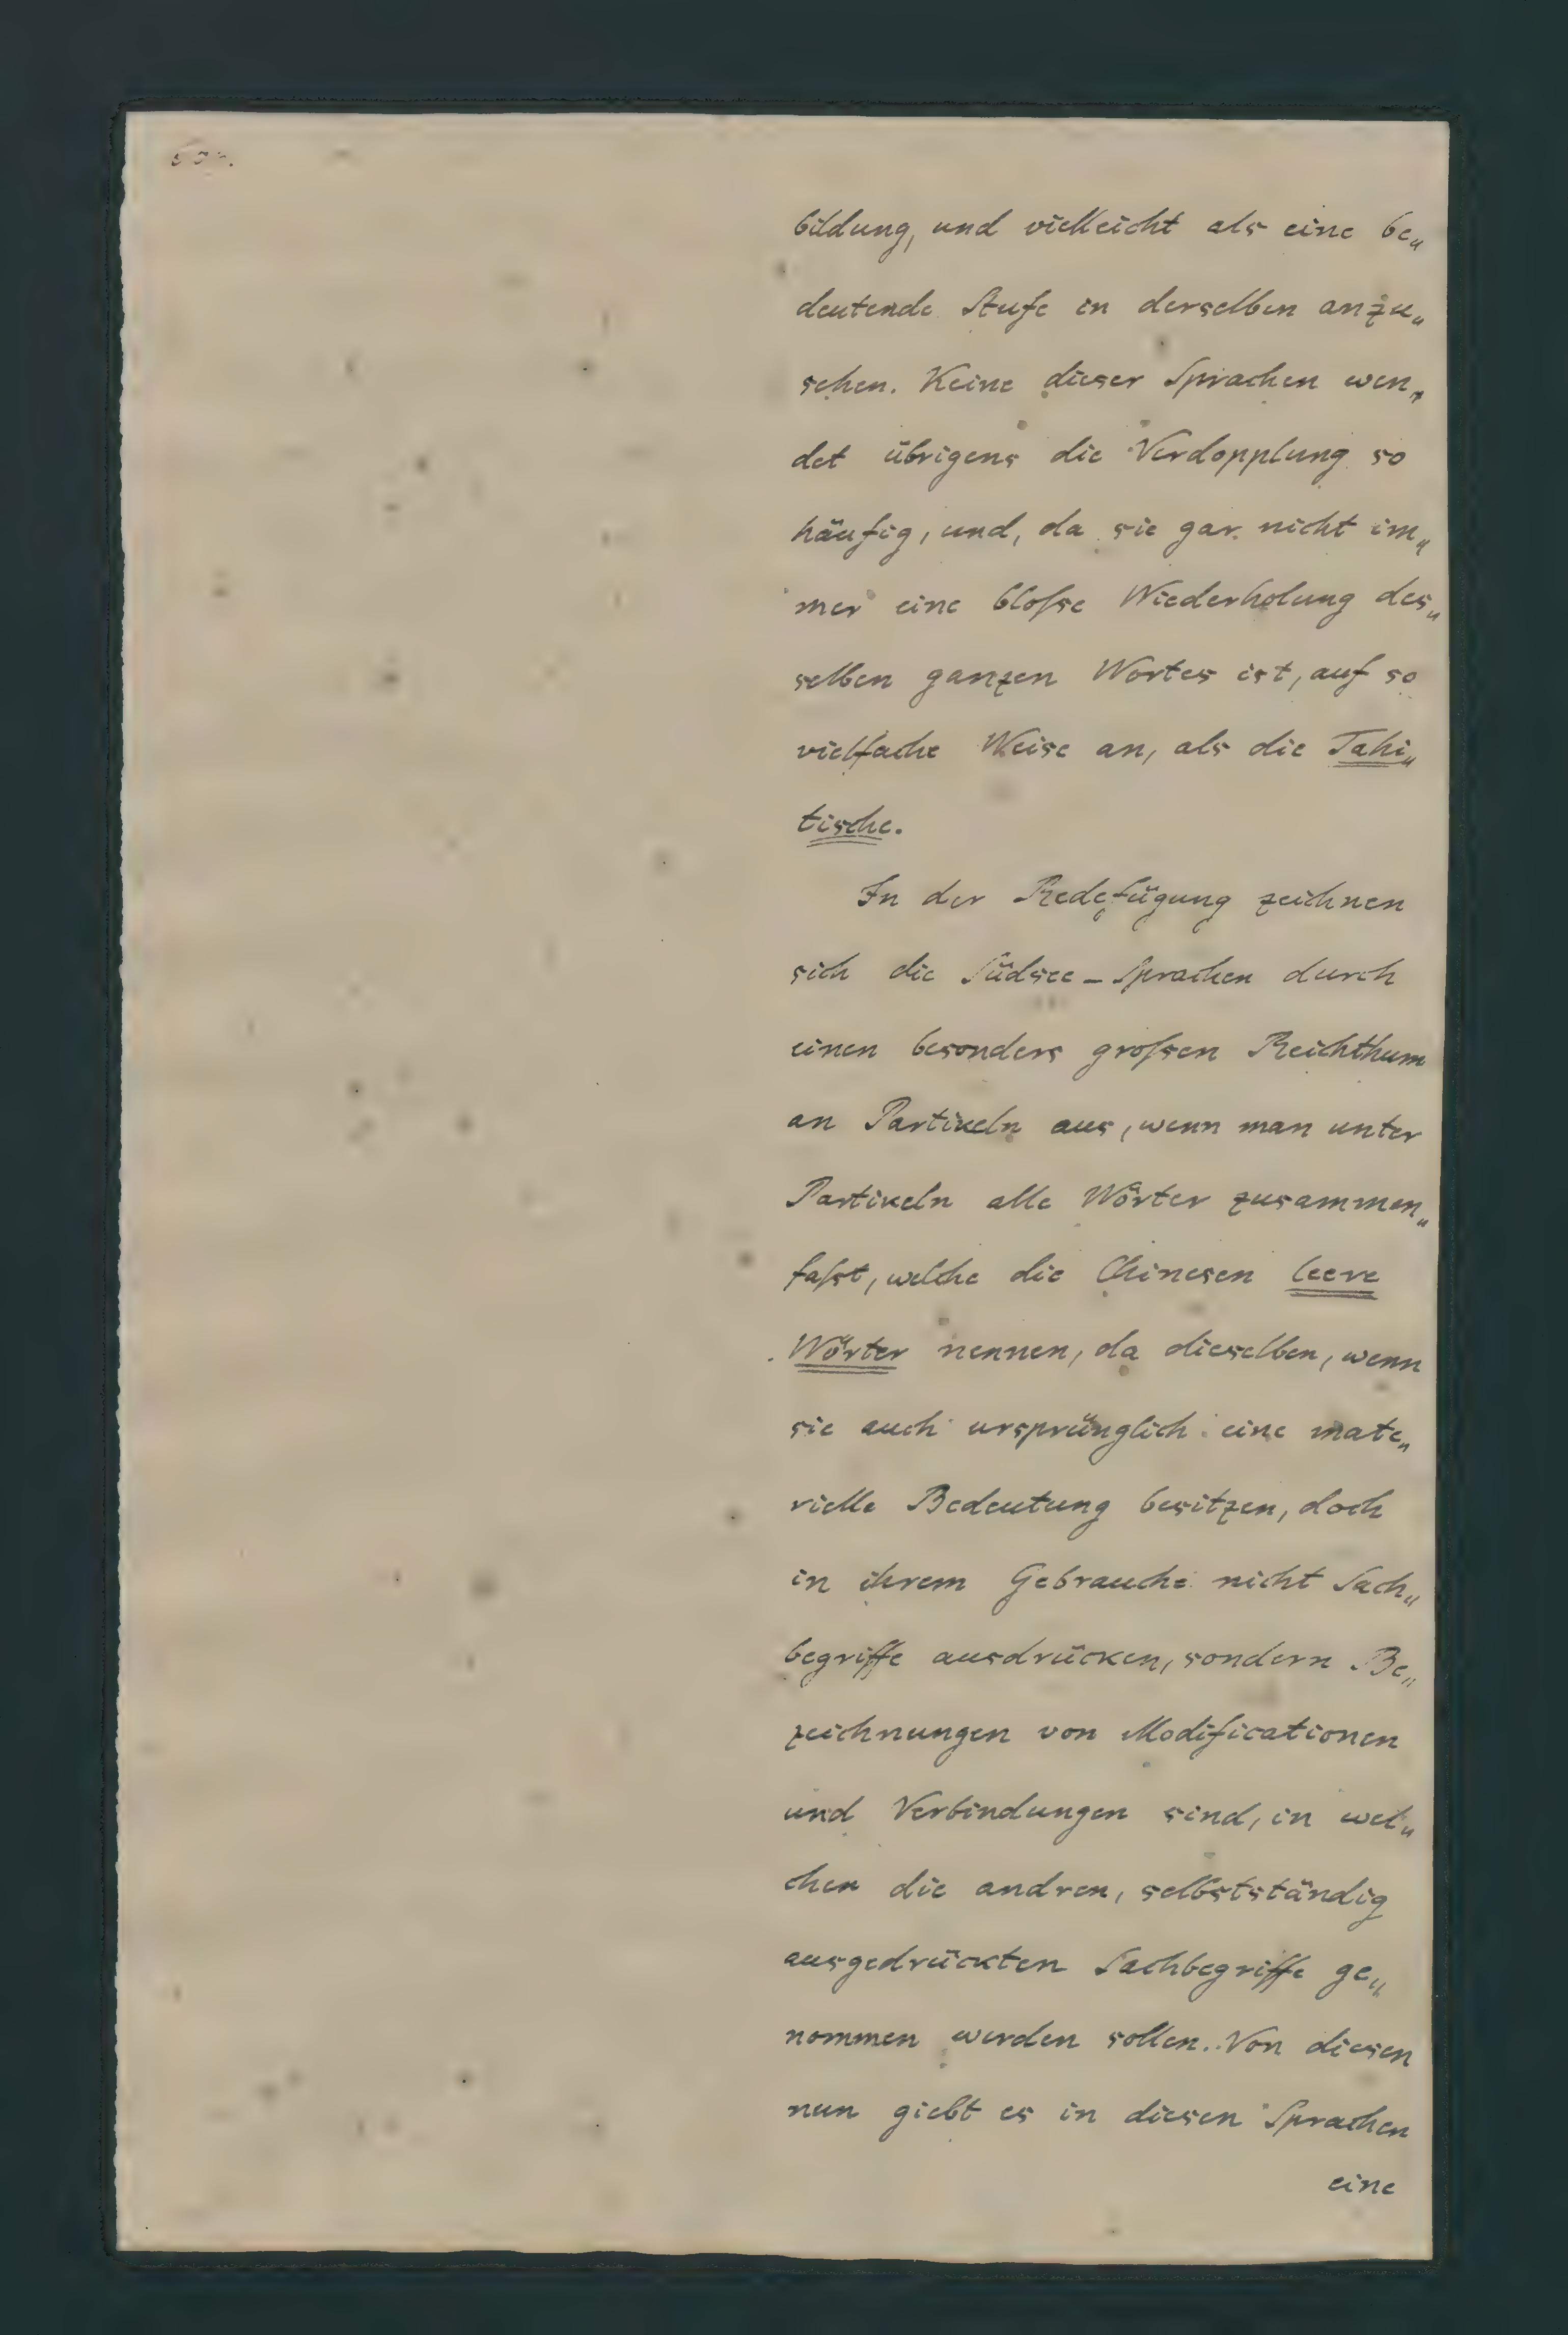 bildung, und vielleicht als eine be„
deutende Stufe in derselben anzu„
sehen. Keine dieser Sprachen wen„
det übrigens die Verdopplung so
häufig, und, da sie gar nicht im„
mer eine bloſse Wiederholung des„
selben ganzen Wortes ist, auf so
vielfache Weise an, als die Tahi„
tische.
In der Redefügung zeichnen
sich die Südsee-Sprachen durch
einen besonders groſsen Reichthum
an Partikeln aus, wenn man unter
Partikeln alle Wörter zusammen„
faſst, welche die Chinesen leere
Wörter nennen, da dieselben, wenn
sie auch ursprünglich eine mate„
rielle Bedeutung besitzen, doch
in ihrem Gebrauche nicht Sach„
begriffe ausdrücken, sondern Be„
zeichnungen von Modificationen
und Verbindungen sind, in wel„
chen die andren, selbstständig
ausgedrückten Sachbegriffe ge„
nommen werden sollen. Von diesen
nun giebt es in diesen Sprachen
eine